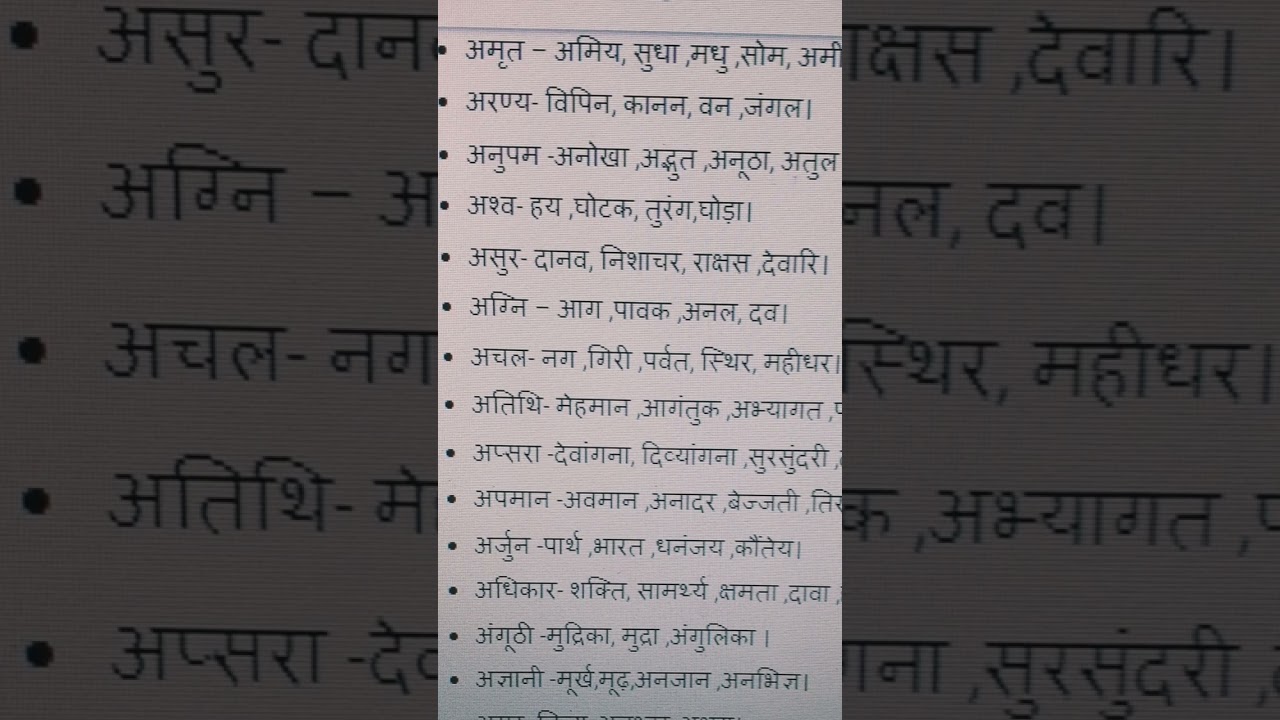 अमृत – अमिय, सुधा ,मधु ,सोम, अमी
अरण्य- विपिन, कानन, वन ,जंगल।
अनुपम -अनोखा ,अद्भुत ,अनूठा, अतुल
अश्व- हय ,घोटक, तुरंग,घोड़ा।
असुर- दानव, निशाचर, राक्षस ,देवारि।
अग्नि – आग ,पावक ,अनल, दव।
अचल- नग ,गिरी ,पर्वत, स्थिर, महीधर।
अतिथि- मेहमान ,आगंतुक ,अभ्यागत ,
अप्सरा -देवांगना, दिव्यांगना ,सुरसुंदरी ,
अपमान -अवमान ,अनादर ,बेज्जती ,
अर्जुन -पार्थ ,भारत ,धनंजय ,कौंतेय।
अधिकार- शक्ति, सामर्थ्य ,क्षमता ,दावा ,
अंगूठी -मुद्रिका, मुद्रा ,अंगुलिका ।
अज्ञानी -मूर्ख,मूढ़,अनजान ,अनभिज्ञ।